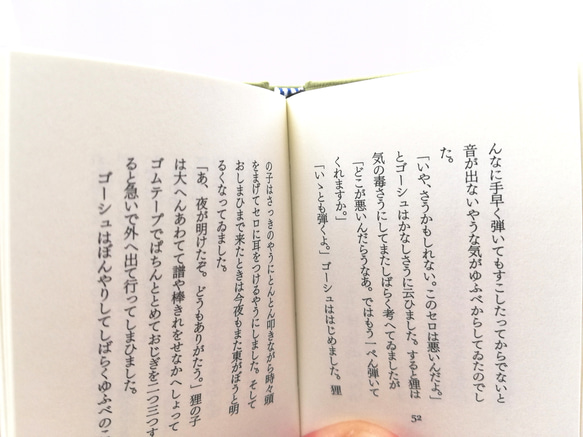 んなに手早く弾いてもすこしたってからでないと
音が出ないやうな気がゆふべからしてゐたのでし
た。
「いや、さうかもしれない。このセロは悪いんだよ。」
とゴーシュはかなしさうに云ひました。すると狸は
気の毒さうにしてまたしばらく考へてゐましたが
「どこが悪いんだらうなあ。ではもう一ぺん弾いて
くれますか。」
「いゝとも弾くよ。」ゴーシュははじめました。狸
52
の子はさっきのやうにとんとん叩きながら時々頭
をまげてセロに耳をつけるやうにしました。そして
おしまひまで来たときは今夜もまた東がぼうと明
るくなってゐました。
「あ、夜が明けたぞ。どうもありがたう。」狸の子
は大へんあわてて譜や棒きれをせなかへしょって
ゴムテープでぱちんととめておじぎを二つ三つす
ると急いで外へ出て行ってしまひました。
ゴーシュはぼんやりしてしばらくゆふべの